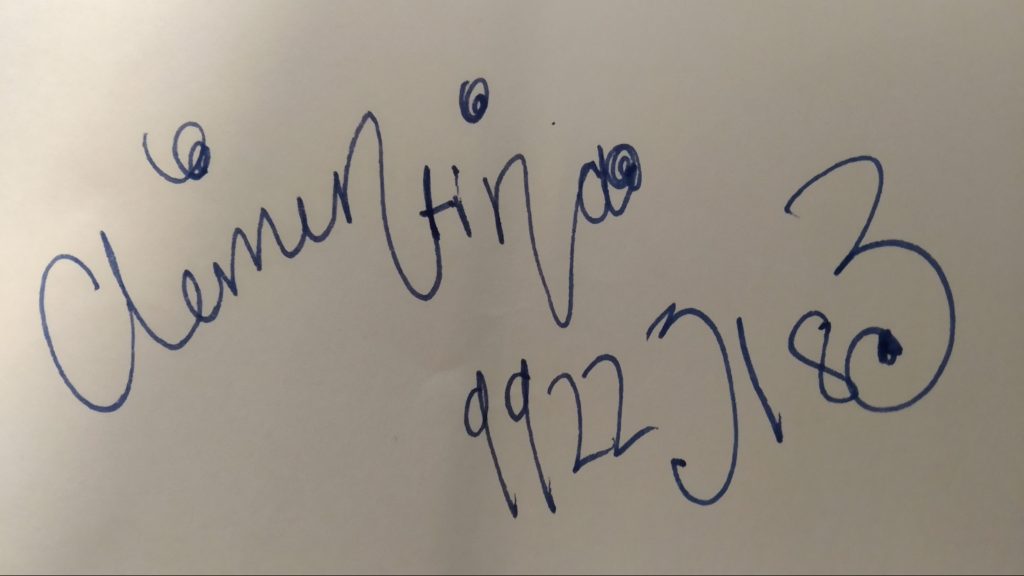 Clementina
99223183